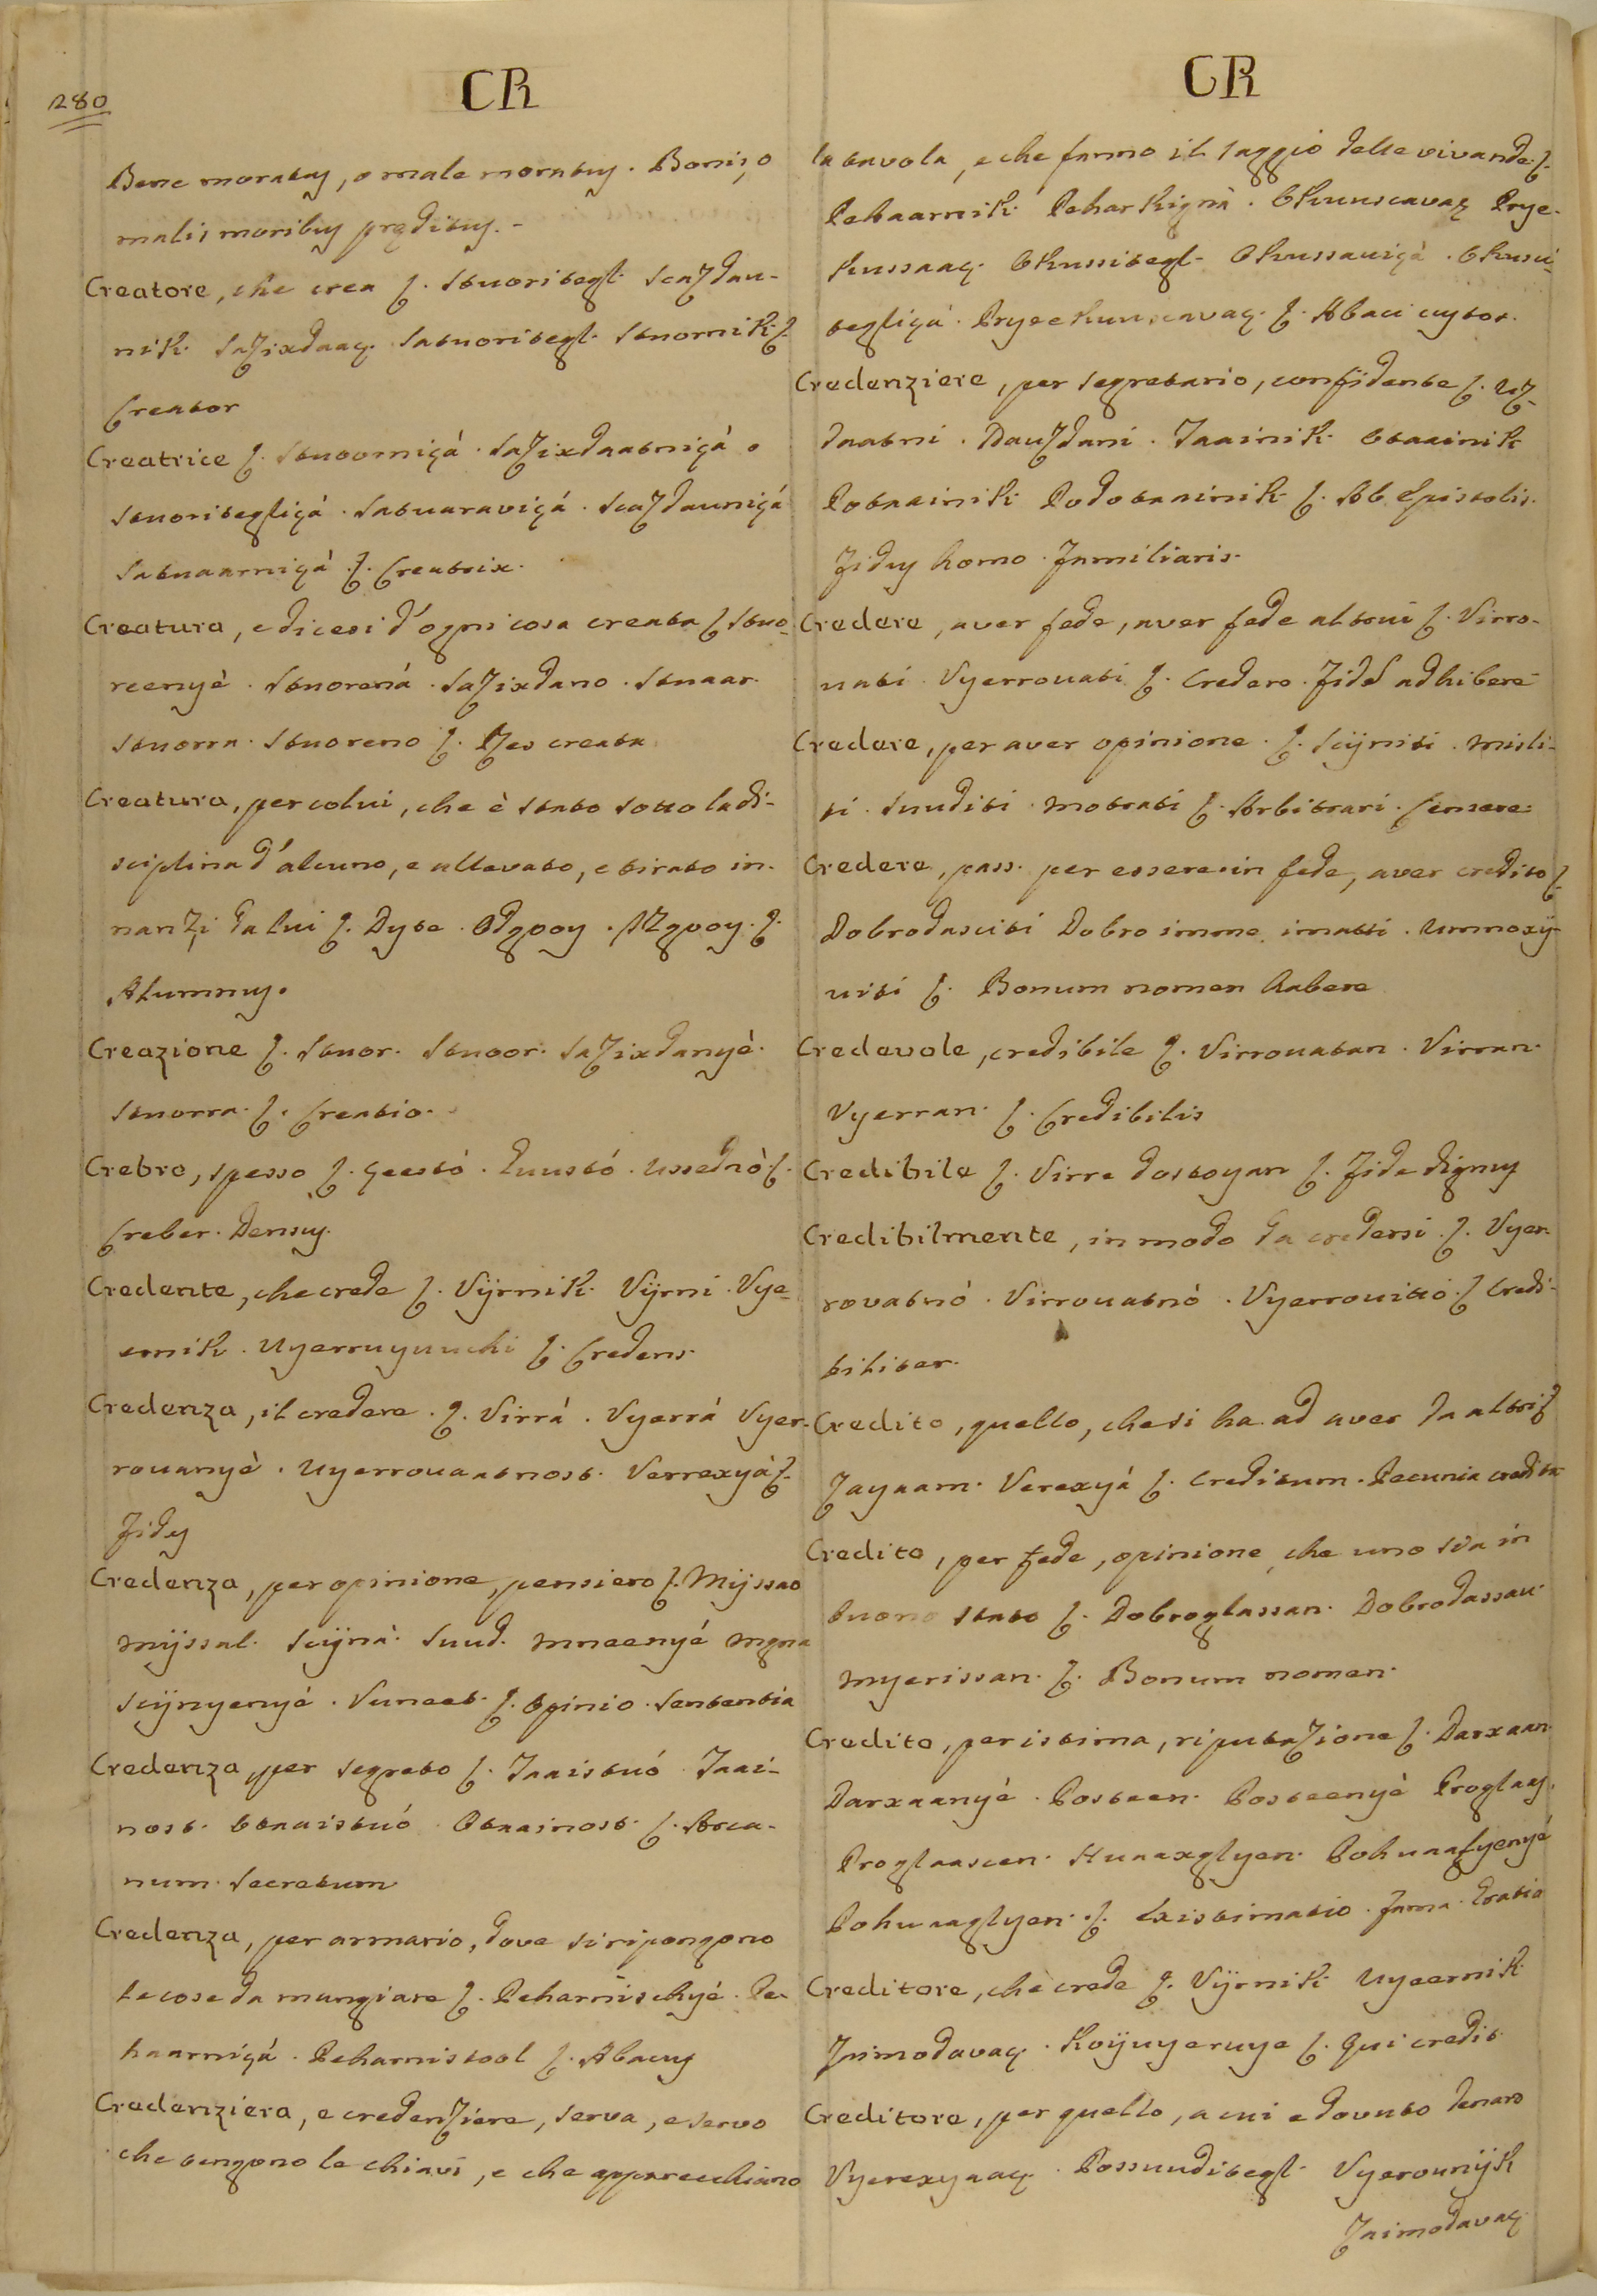 280
CR
Bene moratus, o male moratus. Bonis, o
malis moribus pręditus.-
Creatore, che crea ſ. Stuoritegl. Scazdau-
nik. Sazixdaaç. Satuoritegl. Stuornik. ſ.
Creator
Creatrice ſ. Stuoorniçà. Sazixdaatniçà.
Stuoritegliçà. Satuaraviçá. Scazdauniçá
Satuaarniçà. ſ. Creatrix.
Creatura, e dicesi d'ogni cosa creata ſ. Stuo-
reenyè. Stuorená. Sazixdano. Stuaar.
Stuorra. Stuoreno ſ. Res creata
Creatura, per colui, che è stato sotto la di-
sciplina d'alcuno, e allevato, e tirato in-
nanzi da lui ſ. Dyte. Odgooy. Uzgooy. ſ.
Alumnus.
Creazione ſ. Stuor. Stuoor. Sazixdanyè.
Stuorra. ſ. Creatio.
Crebro, spesso ſ. Çeestò. Guustó. Ussednò ſ.
Creber. Densus.
Credente, che crede ſ. Vijrnik. Vijrni. Vye-
ernik. Uyerruyuuchi ſ. Credens.
Credenza, il credere. ſ. Virrá. Vyerrá Vyer-
rouanyè. Uyerrouaatnost. Verrexyà ſ.
Fides
Credenza, per opinione, pensiero ſ. Mijssao
mijssal. Scijnà. Suud. mneenyé mgna
Scijnyenyé. Suneet. ſ. Opinio. Sententia
Credenza, per segreto ſ. Taaistuó. Taai-
nost. Otaaistuó. Otaainost. ſ. Arca-
num. Secretum
Credenza, per armario, dove si ripongono
le cose da mangiare ſ. Peharnischyé. Pe-
haarniçá. Peharnistool ſ. Abacus
Credenziera, e credenziere, serva, e servo
che tengono le chiavi, e che apparecchiano
CR
la tavola, e che fanno il saggio delle vivande. ſ.
Pehaarnik. Peharkignà. Okuuscavaç Prye-
kussaaç. Okussitegl. Okussauiçà. Okusci-
tegliçá. Pryeekuuscavaç. ſ. Abaci custos.
Credenziere, per segretario, confidente ſ. Uz-
daatni. Dauzdani. Taainik. Otaainik
Potaainik. Podotaainik. ſ. Ab Epistolis.
Fidus homo. Familiaris.
Credere, aver fede, aver fede altrui ſ. Virro-
uati. Vyerrouati ſ. Credere. Fidē adhibere
Credere, per aver opinione. ſ. Scijniti. misli-
ti. Suuditi. motrati ſ. Arbitrari. Censere.
Credere, pass. per essere in fede, aver credito ſ.
Dobrodasciti Dobro imme imatti. Umnoxij-
uiti ſ. Bonum nomen habere
Credevole, credibile ſ. Virrouatan. Virran.
Vyerran. ſ. Credibilis
Credibile ſ. Virre dostoyan ſ. Fide dignus
Credibilmente, in modo da credersi. ſ. Vyer-
rovatnó. Virrouatnò. Vyerrouittó. ſ. Credi-
biliter.
Credito, quello, che si ha ad aver da altri ſ.
Zayaam. Verexyá ſ. Creditum. Pecunia credita
Credito, per fede, opinione, che uno stia in
buono stato ſ. Dobroglassan. Dobrodassau.
myerissan. ſ. Bonum nomen.
Credito, per istima, riputazione ſ. Darxaan.
Darxaanyè. Posteen. Posteenyè Proglaas.
Proglaascen. Huaaxglyen. Pohuaaglyenyé
Pohuaaglyen. ſ. Existimatio. Fama. Gratia
Creditore, che crede ſ. Vijrnik. Uyeernik
Zaimodavaç. Koijuyeruye ſ. Qui credit
Creditore, per quello, a cui e dovuto denaro
Vyerexyaaç. Possuuditegl. Vyerounijk
Zaimodavaç